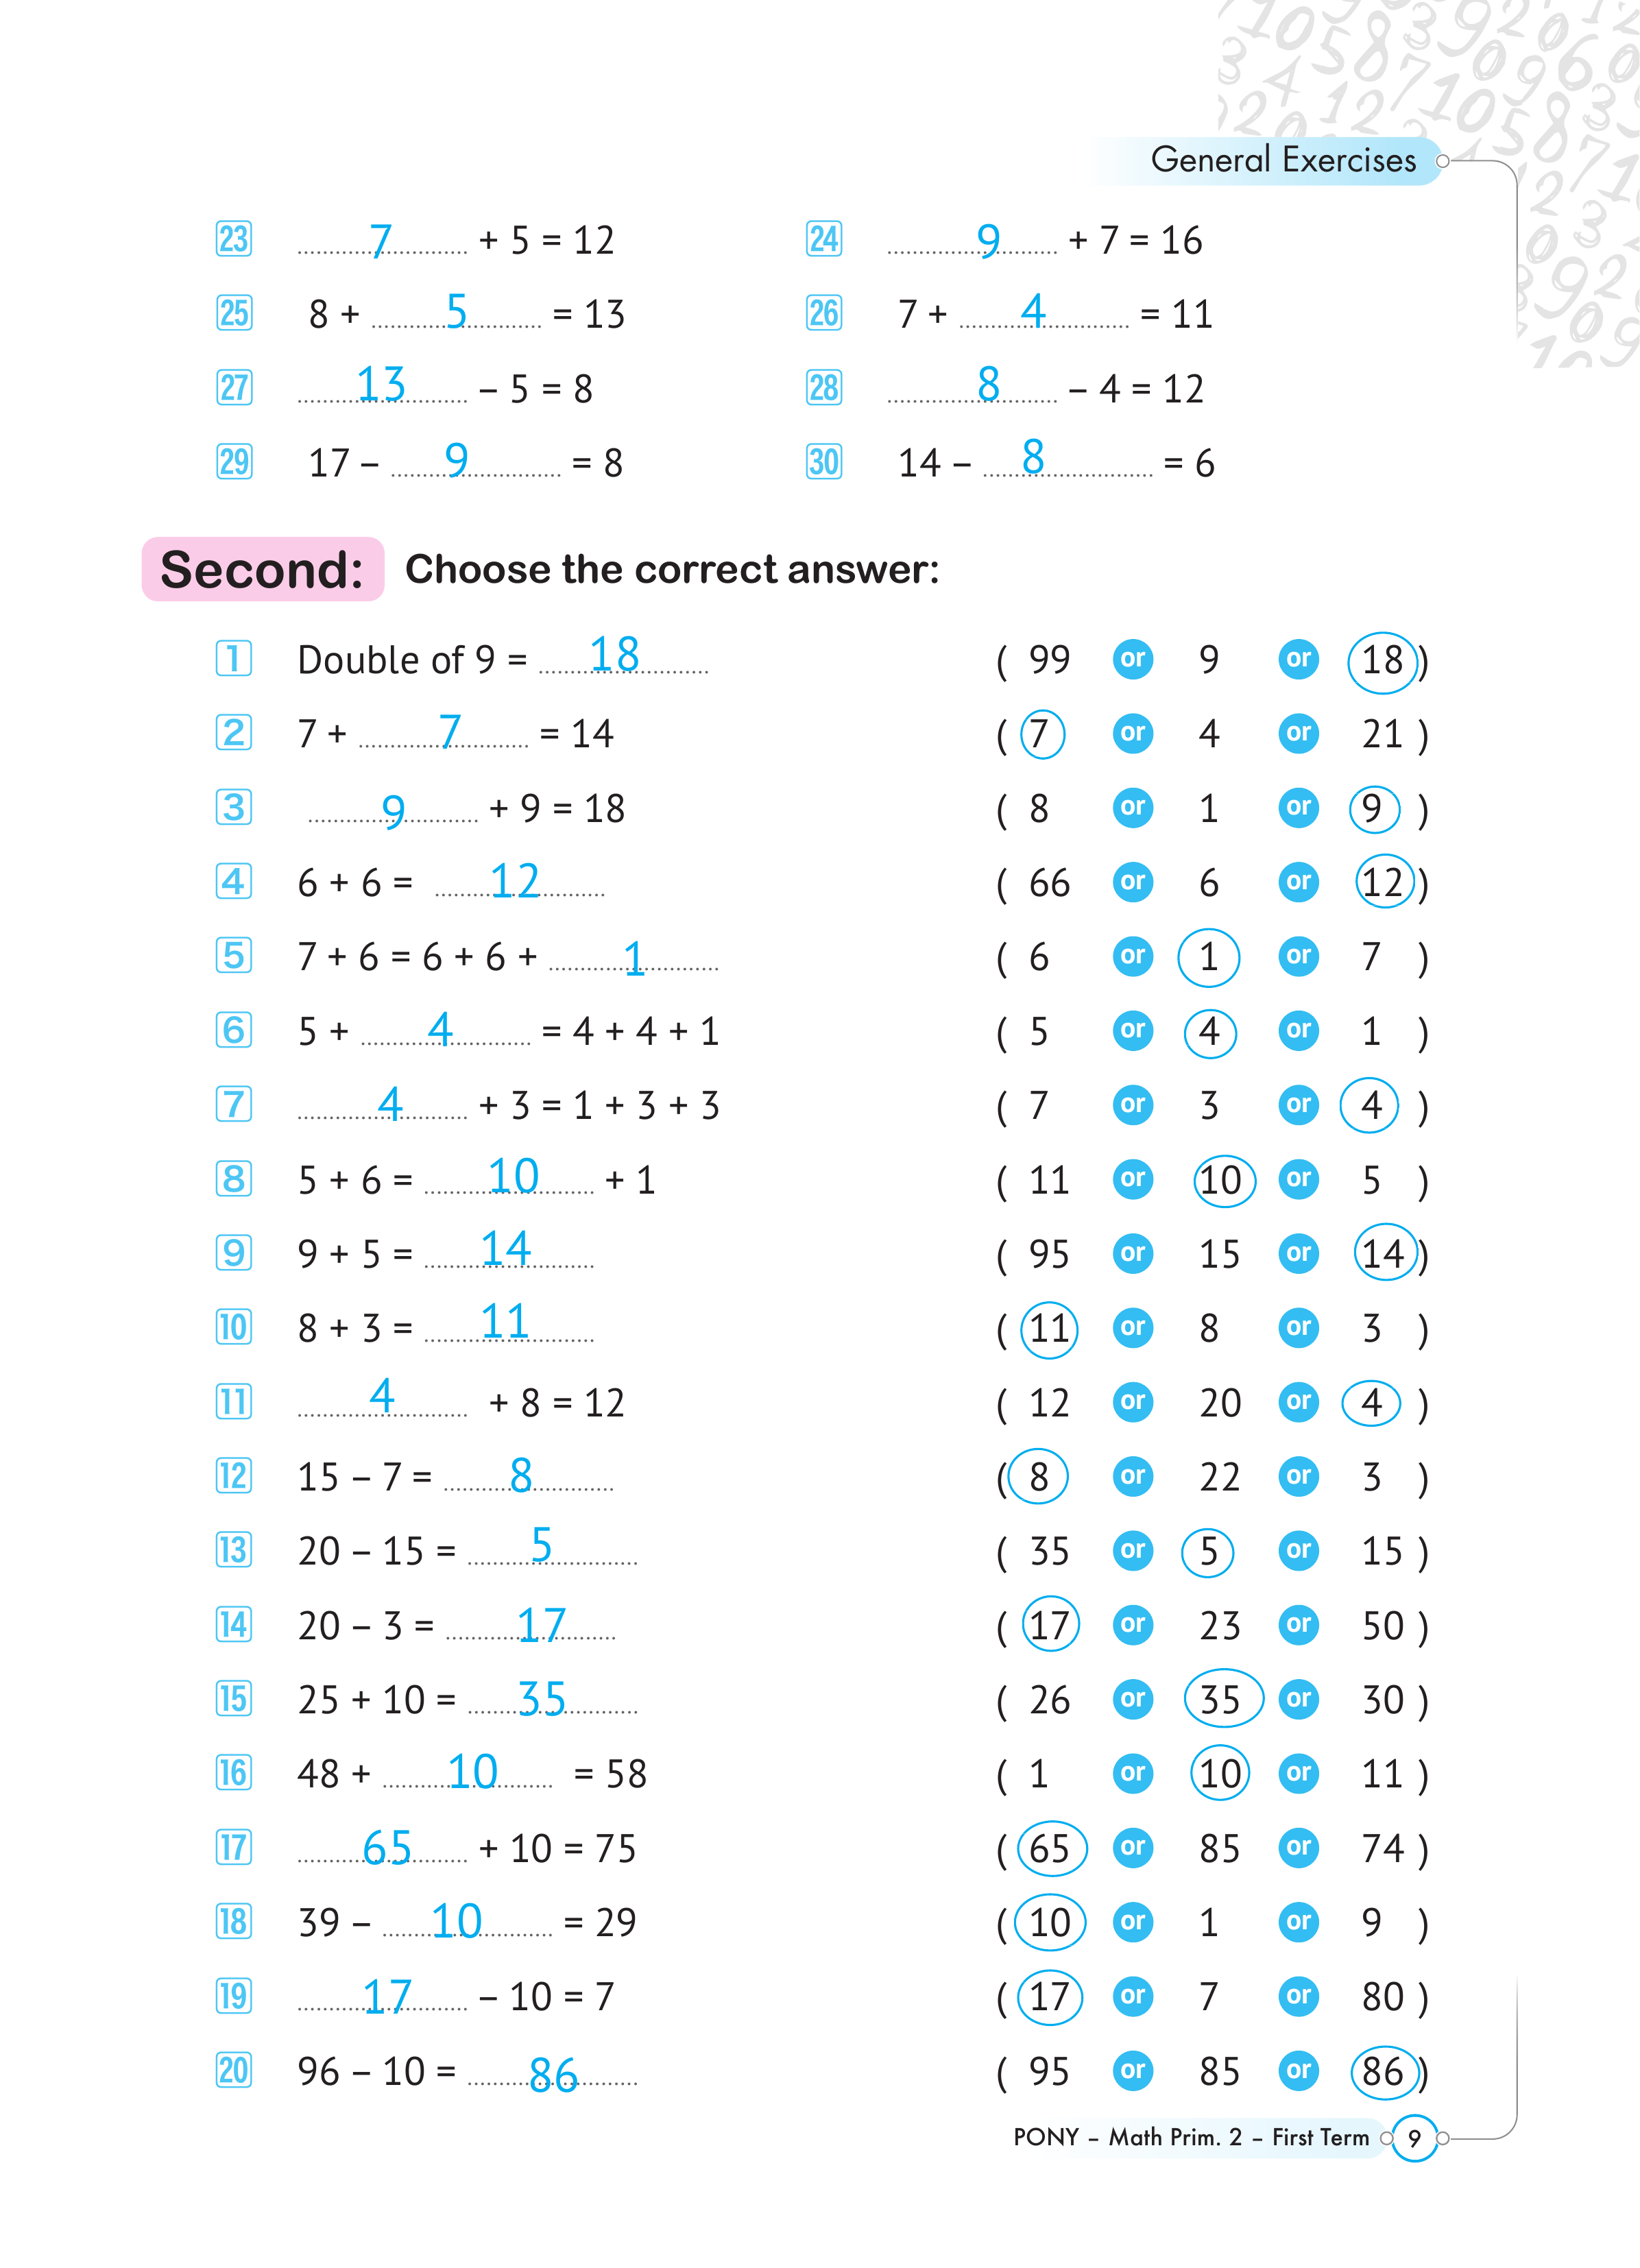 General Exercises
23 7 + 5 = 12 24 9 + 7 = 16
25 8 + 5 = 13 26 7 + 4 = 11
27 13 – 5 = 8 28 8 – 4 = 12
29 17 – 9 = 8 30 14 – 8 = 6
Second: Choose the correct answer:
1 Double of 9 = 18 ( 99 or 9 or 18 )
2 7 + 7 = 14 ( 7 or 4 or 21 )
3 9 + 9 = 18 ( 8 or 1 or 9 )
4 6 + 6 = 12 ( 66 or 6 or 12 )
5 7 + 6 = 6 + 6 + 1 ( 6 or 1 or 7 )
6 5 + 4 = 4 + 4 + 1 ( 5 or 4 or 1 )
7 4 + 3 = 1 + 3 + 3 ( 7 or 3 or 4 )
8 5 + 6 = 10 + 1 ( 11 or 10 or 5 )
9 9 + 5 = 14 ( 95 or 15 or 14 )
10 8 + 3 = 11 ( 11 or 8 or 3 )
11 4 + 8 = 12 ( 12 or 20 or 4 )
12 15 – 7 = 8 ( 8 or 22 or 3 )
13 20 – 15 = 5 ( 35 or 5 or 15 )
14 20 – 3 = 17 ( 17 or 23 or 50 )
15 25 + 10 = 35 ( 26 or 35 or 30 )
16 48 + 10 = 58 ( 1 or 10 or 11 )
17 65 + 10 = 75 ( 65 or 85 or 74 )
18 39 – 10 = 29 ( 10 or 1 or 9 )
19 17 – 10 = 7 ( 17 or 7 or 80 )
20 96 – 10 = 86 ( 95 or 85 or 86 )
PONY – Math Prim. 2 – First Term 9